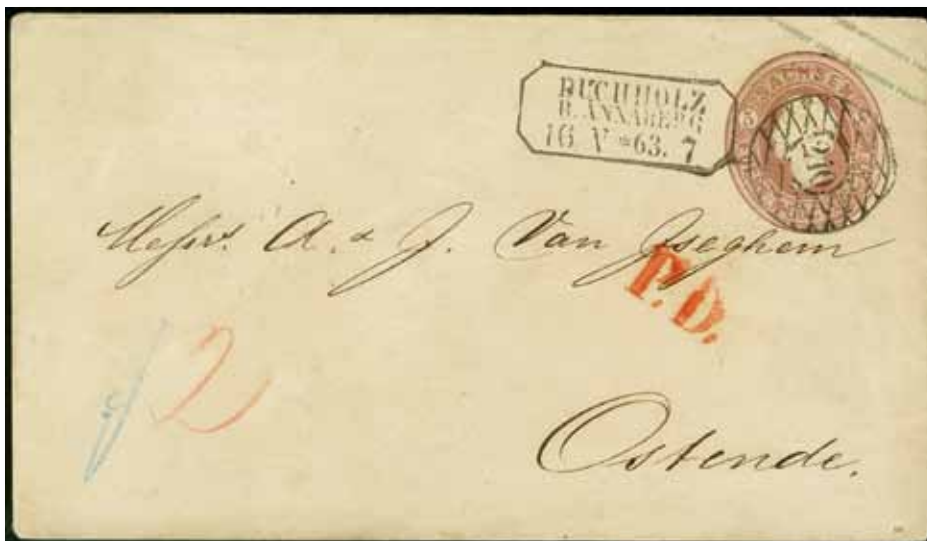 BUCHHOLZ
B. ANNABERG
16 V *63. 7
SACHSEN
210
Messrs. A. & J. Van Iseghem
P.D.
2
Ostende.